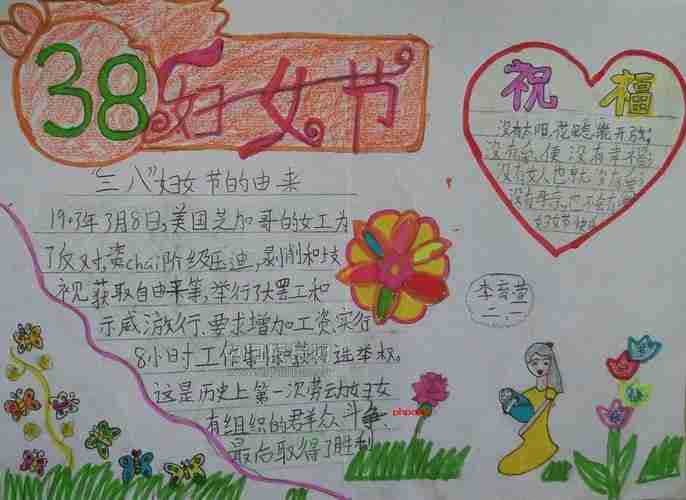 38妇女节
"三八"妇女节的由来
1903年3月8日,美国芝加哥的女工为
了反对,资chai阶级压迪,剥削和歧
视获取自由来等,举行了大罢工和
示威游行、要求增加工资,实行
8小时工作制和获得选举权。
这是历史上第一次劳动妇女
有组织的群众斗争,
最后取得了胜利
祝福
没有太阳,花
没有 便 没有幸福
没有女人也就没有爱
没有母亲,也不会有
妇女节快乐
李
二、一